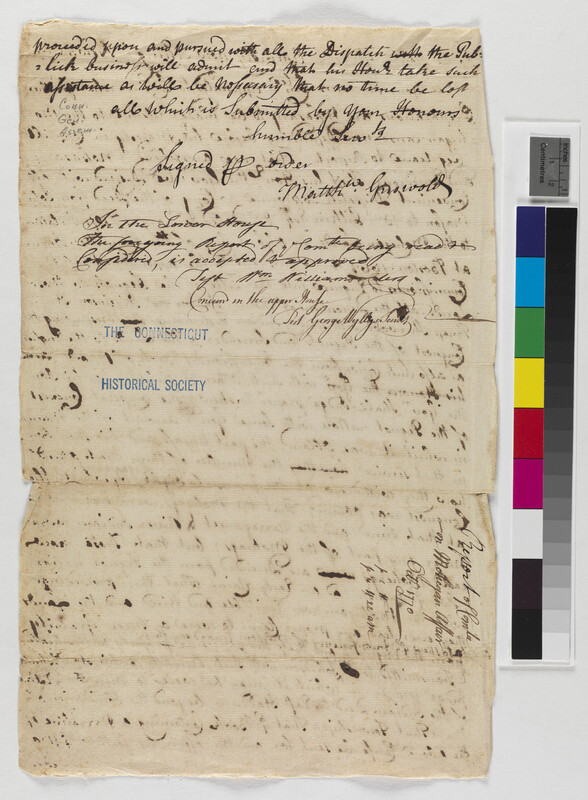 proceeded upon and pursued with all the Dispatch with the Pub-
-lick business will admit and that his Honr. take such
assistance as will be Nessasary that no time be lost
all Which is Submitted by Your Honours
humble Servts
Signed pr order
Matthw Griswold
In the Lower House
The foregoing Report of Comtee being read &
Considered, is accepted & approved
Test Wm Williams Clerk
Concurd in the upper House
Test George Wyllys Secrety
THE CONNECTICUT
HISTORICAL SOCIETY
Report of Comtee
on Mohegan Affair
Octr. 1770